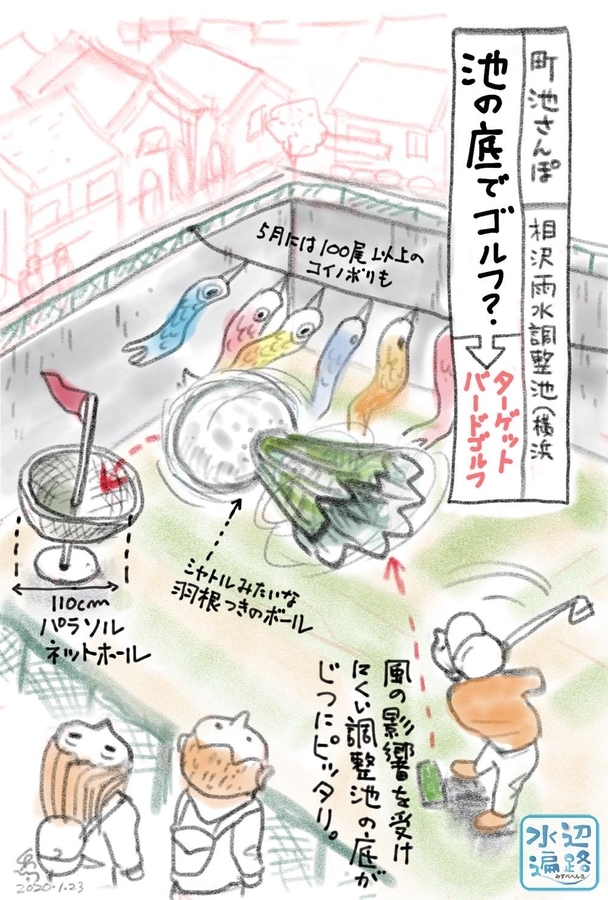 町池さんぽ
相沢雨水調整池(横浜
池の底でゴルフ?
ターゲット
バードゴルフ
5月には100尾以上の
コイノボリも
シャトルみたいな
羽根つきのボール
110cm
パラソル
ネットホール
風の影響を受け
にくい調整池の底が
じつにピッタリ。
水辺
遍路
みずべへんろ
2020.1.23